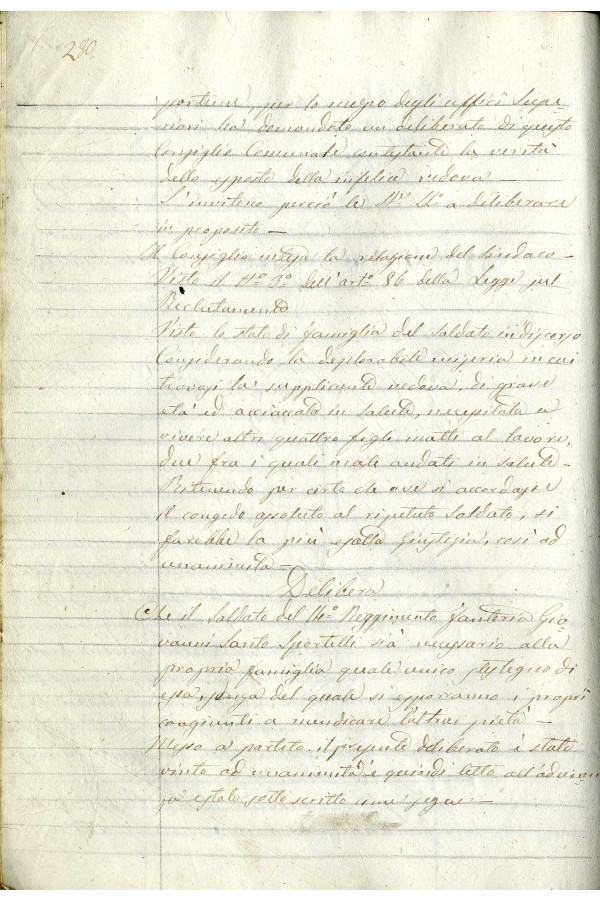 280.
portune, per lo mezzo degli ufficî Supe-
riori ha domandato un deliberato di questo
Consiglio Comunale contestante la verità
dello esposto della infelice vedova —
S'invitano perciò le SS.rie LL. a deliberare
in proposito —
Il Consiglio intesa la relazione del Sindaco —
Visto il N.o 3.o dell'art.o 86 della Legge sul
Reclutamento
Visto lo stato di famiglia del soldato in discorso
Considerando la deplorabile miseria in cui
trovasi la supplicante vedova, di grave
età ed acciaccata in salute, necessitata a
vivere altri quattro figli inatti al lavoro,
due fra i quali male andati in salute —
Ritenendo per certo che ove si accordasse
il congedo assoluto al ripetuto soldato, si
farebbe la più esatta Giustizia, così ad
unanimità —
Delibera
Che il soldato del 14.o Reggimento Fanteria Gio
vanni Santo Sportelli sia necessario alla
propria famiglia quale unico sostegno di
essa, senza del quale si esporranno i proprî
congiunti a mendicare l'altrui pietà —
Messo a partito, il presente deliberato è stato
vinto ad unanimità e quindi letto all'adunan
za è stato sottoscritto come segue —